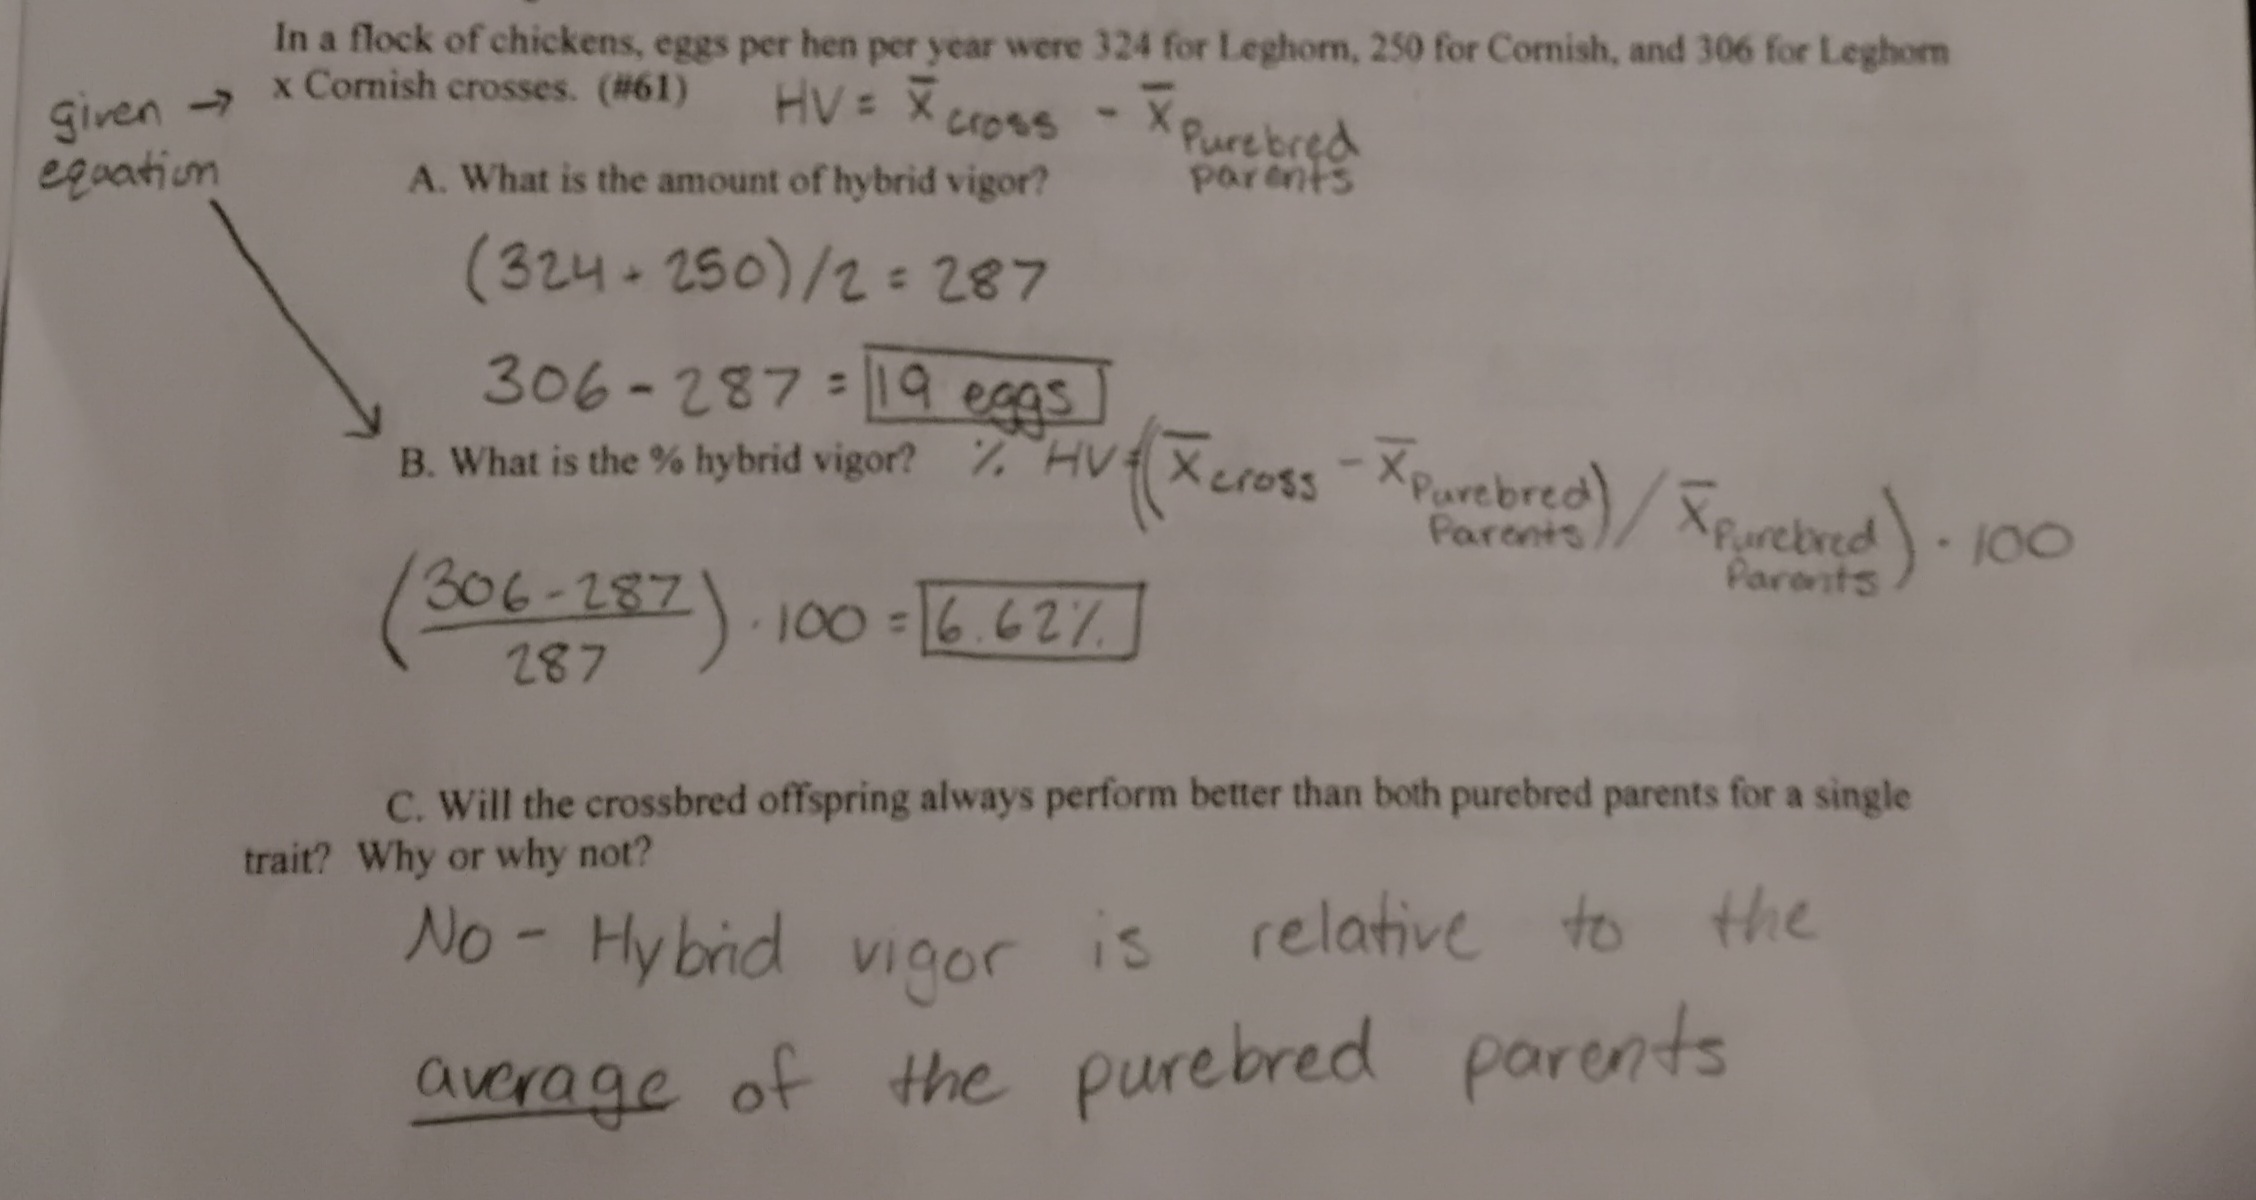 In a flock of chickens, eggs per hen per year were 324 for Leghorn, 250 for Cornish, and 306 for Leghorn
x Cornish crosses. (#61)
HV = x̄ cross - x̄ Purebred parents
given →
equation
A. What is the amount of hybrid vigor?
(324 + 250)/2 = 287
306 - 287 = 19 eggs
B. What is the % hybrid vigor?
% HV = ((x̄ cross - x̄ Purebred Parents) / x̄ Purebred Parents) · 100
(306-287 / 287) · 100 = 6.62%
C. Will the crossbred offspring always perform better than both purebred parents for a single
trait? Why or why not?
No - Hybrid vigor is relative to the
average of the purebred parents